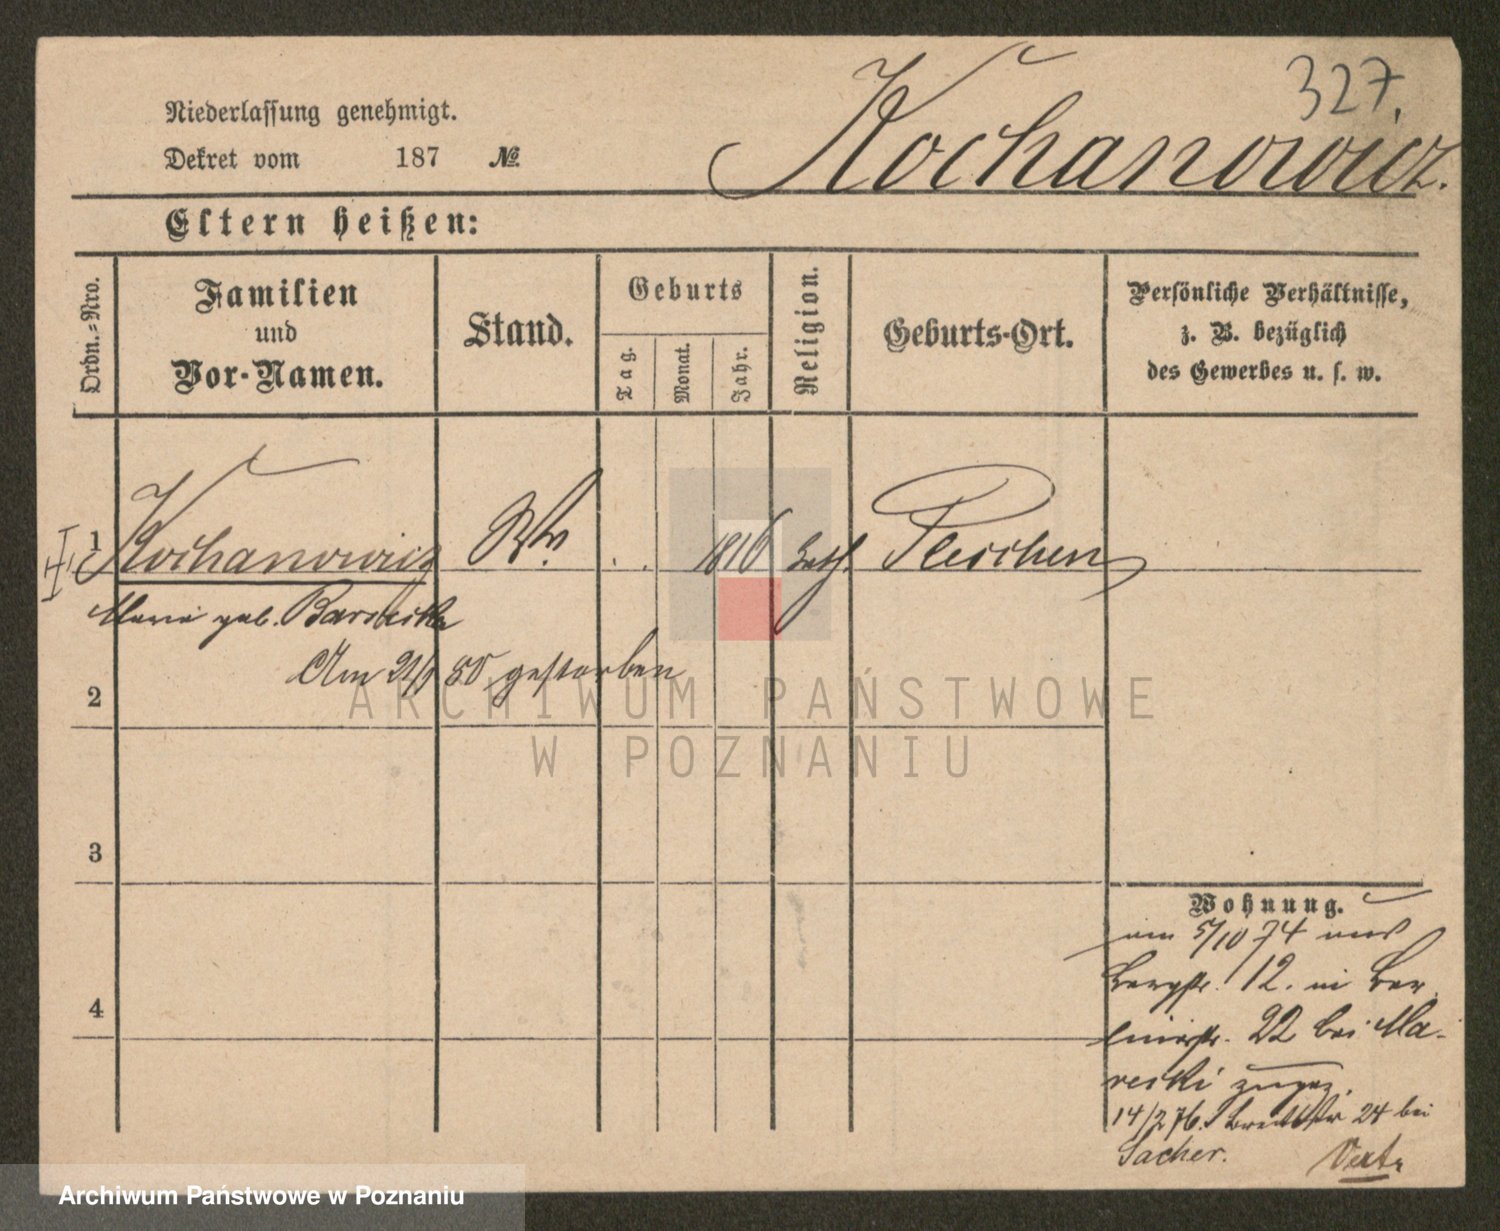 327.
Niederlassung genehmigt.
Dekret vom 187 №
Kochanowicz.
Eltern heißen:
Ordn.=Nro.
Familien
und
Vor-Namen.
Stand.
Geburts
Tag.
Monat.
Jahr.
Religion.
Geburts-Ort.
Persönliche Verhältnisse,
z. B. bezüglich
des Gewerbes u. s. w.
1 Kochanowicz Ww. . . 1816 kath. Pleschen
Maria geb.
Am 21/1 80 gestorben
2
3
4
Wohnung.
am 5/10 74 aus
Bergstr. 12. in Ber
linerstr. 22 bei Ma-
recki zugez.
14/2 76. Breitestr 24 bei
Sacher. Verte
ARCHIWUM PAŃSTWOWE
W POZNANIU
Archiwum Państwowe w Poznaniu